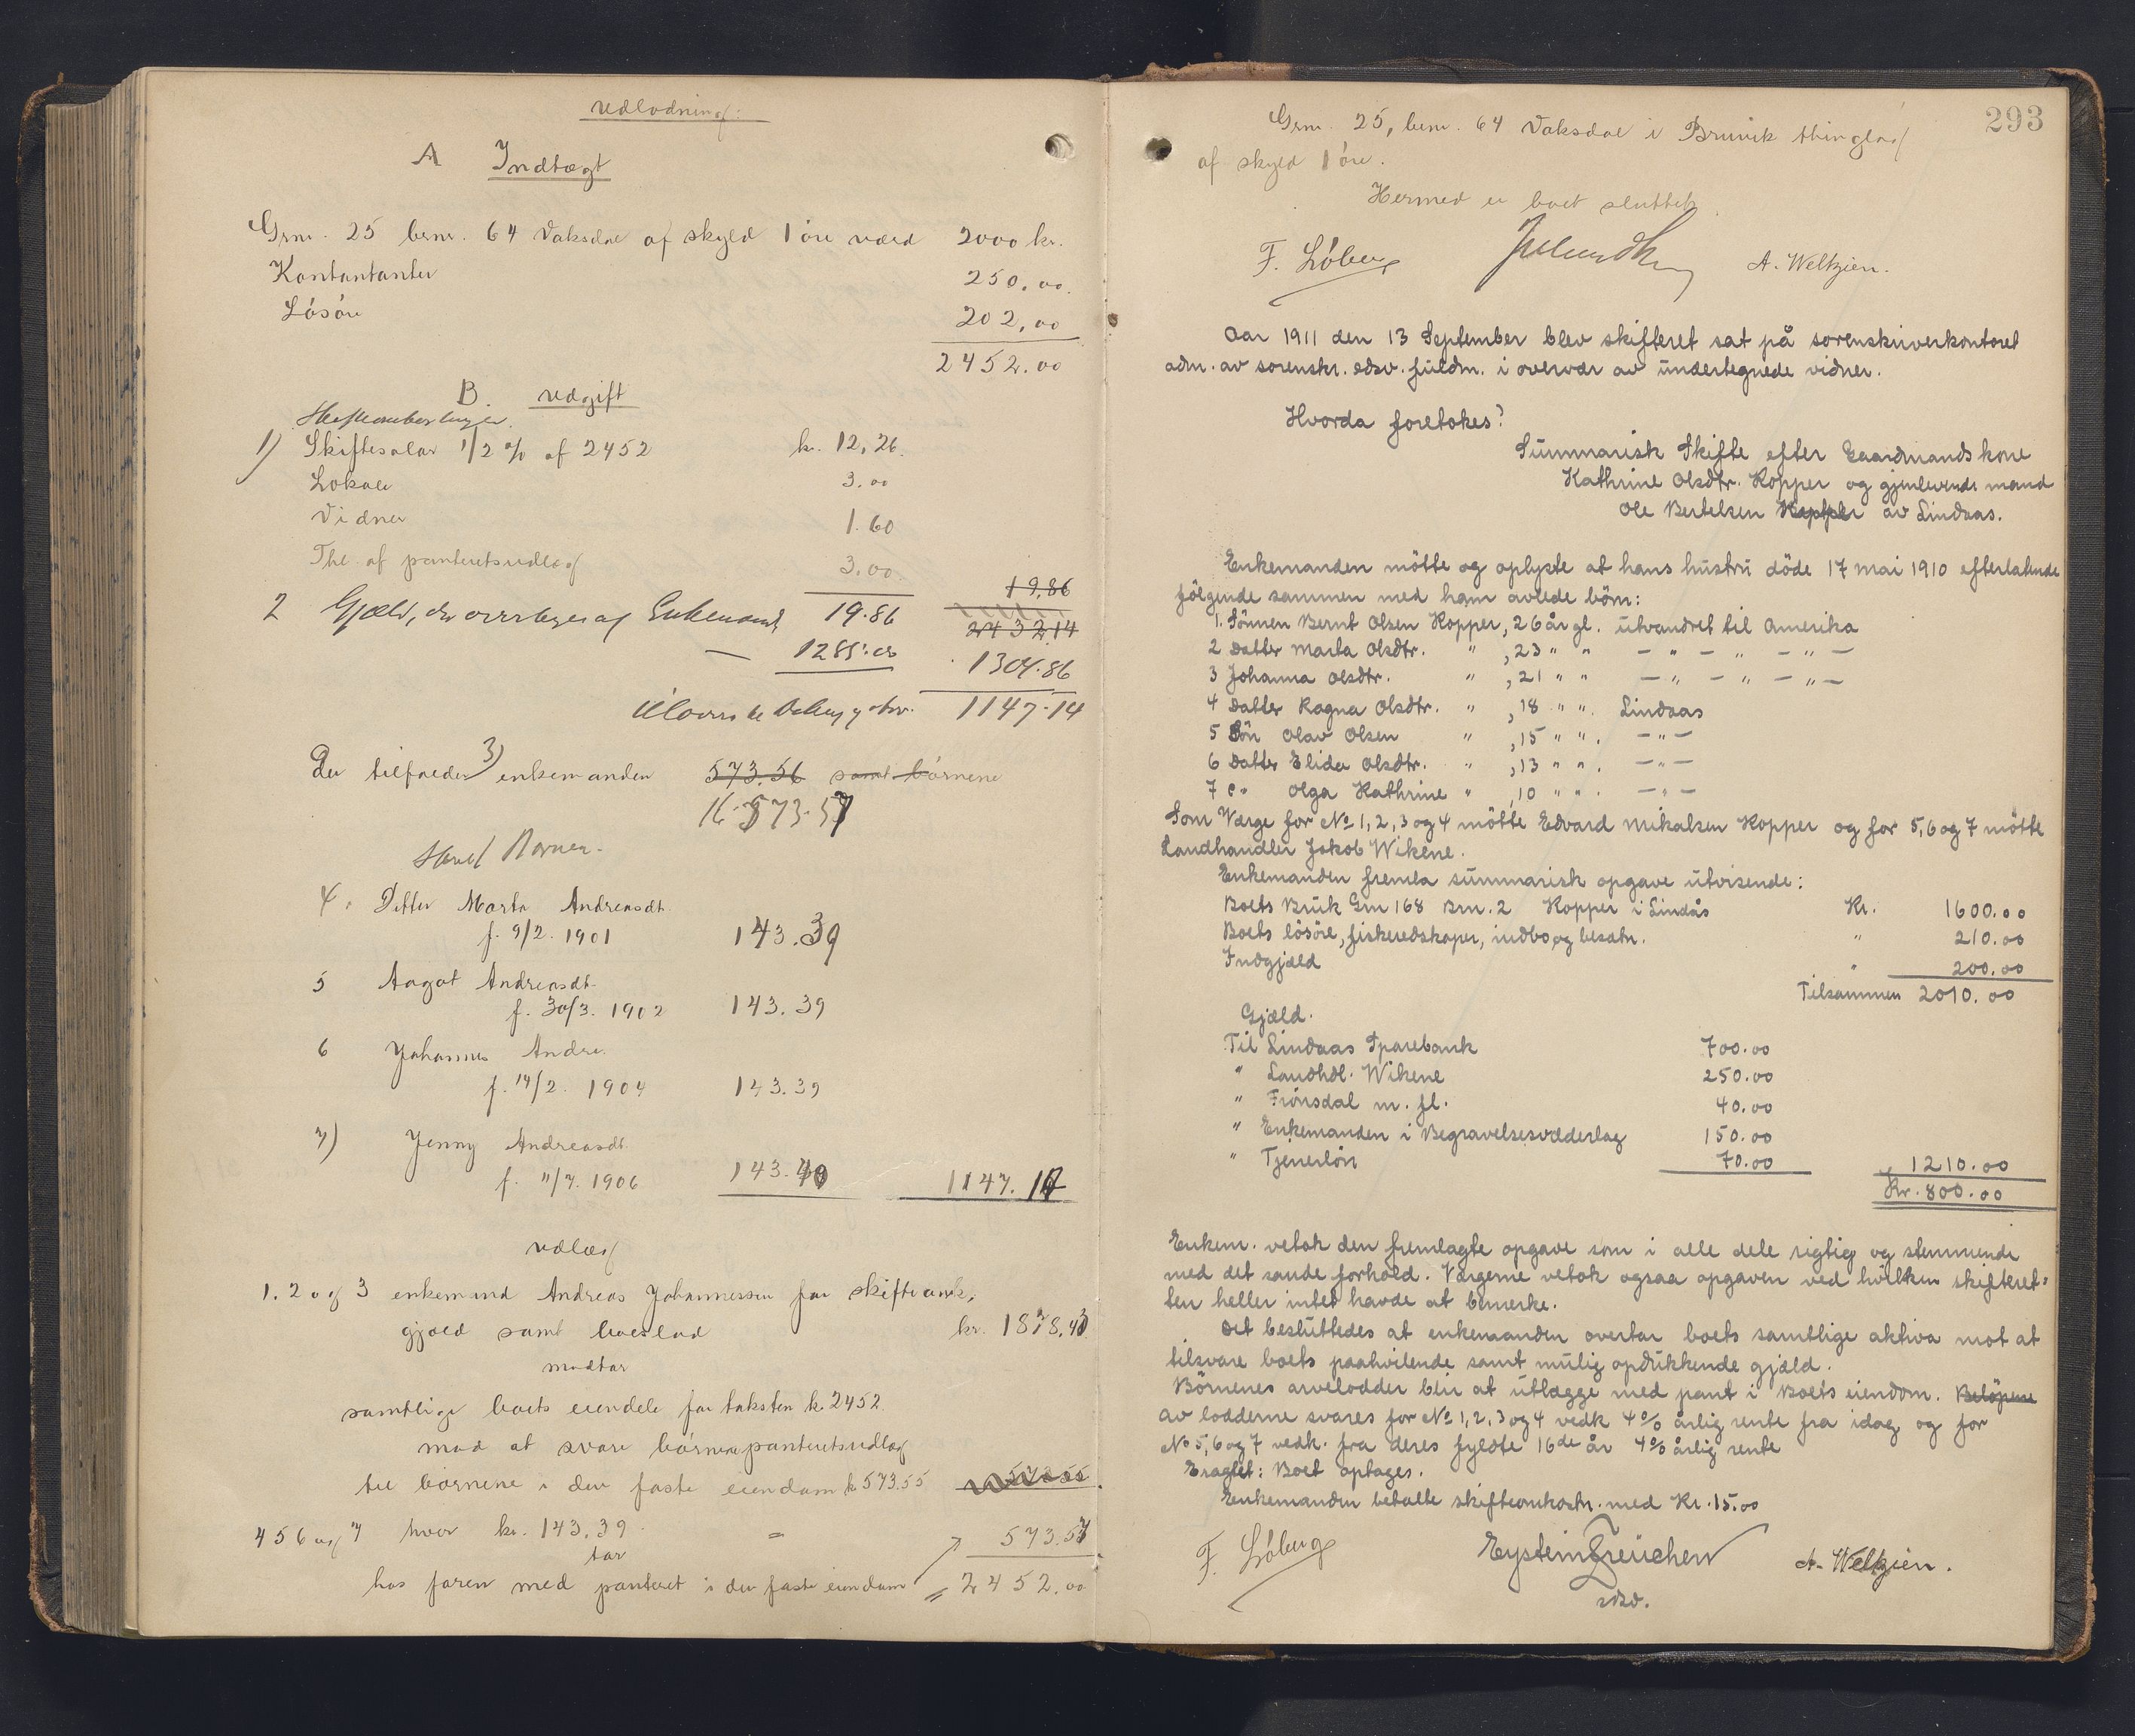 Udlodning:
A Indtægt
Grnr. 25 brnr. 64 Vaksdal af skyld 1 øre værd 2000 kr.
Kontantanter 250.00.
Løsøre 202,00
2452.00
B. Udgift
1) Skiftesalær 1/2 % af 2452 kr. 12,26.
Lokale 3.00
Vidner 1.60
Thl. af panteretsudlæg 3.00
19,86
2 Gjæld, der overtages af Enkemand 19.86 243214
1285.00 1304.86
1147.14
Der tilfalder 3) enkemanden 573.56 samt børnene
573.57
4. Datter Marta Andreasdt.
f. 9/2. 1901 143.39
5 Aagot Andreasdt.
f. 30/3. 1902 143.39
6 Johannes Andre.
f. 14/2. 1904 143.39
7) Jenny Andreasdt.
f. 11/7. 1906 143.40 1147.14
Udlæg
1. 2 og 3 enkemand Andreas Johannessen for skifteomk,
gjæld samt boeslod kr. 1878.43
modtar
samtlige boets eiendele for taksten kr. 2452.
mod at svare børnene panteretsudlæg
til børnene i den faste eiendom kr 573.55
4 5 6 og 7 hver kr. 143,39. = 573.57
tar
hos faren med panteret i den faste eiendom = 2452.00
293
Grnr. 25, brnr. 64 Vaksdal i Bruvik thinglag
af skyld 1 øre.
Hermed er boet sluttet.
F. Løberg A. Weltzien.
Aar 1911 den 13 September blev skifteret sat på sorenskriverkontoret
adm. av sorenskr. edsv. fuldm. i overvær av undertegnede vidner.
Hvorda foretokes:
Summarisk Skifte efter Gaardmandskone
Kathrine Olsdtr. Kopper og gjenlevende mand
Ole Bertelsen Kopper av Lindaas.
Enkemanden møtte og oplyste at hans hustru døde 17 mai 1910 efterlatende
følgende sammen med ham avlede børn:
1. Sønnen Bernt Olsen Kopper, 26 år gl. utvandret til Amerika
2 Datter Marta Olsdtr. " , 23 " " — " — " — " —
3 Johanna Olsdtr. " , 21 " " — " — " — " —
4 Datter Ragna Olsdtr. " , 18 " ". Lindaas
5 Søn Olav Olsen " , 15 " ". — " —
6 Datter Elida Olsdtr. " , 13 " ". — " —
7 do Olga Kathrine " , 10 " ". — " —
Som Værge for No 1, 2, 3 og 4 møtte Edvard Mikalsen Kopper og for 5, 6 og 7 møtte
Landhandler Jakob Wikene.
Enkemanden fremla summarisk opgave utvisende:
Boets Bruk Gnr 168 Brn. 2 Kopper i Lindås Kr. 1600.00
Boets løsøre, fiskeredskaper, indbo og besætn. " 210.00
Indgjæld " 200.00
Tilsammen 2010.00
Gjæld.
Til Lindaas Sparebank 700.00
" Landhdl. Wikene 250.00
" Fronsdal m. fl. 40.00
" Enkemanden i Begravelsesvederlag 150.00
" Tjenerløn 70.00 " 1210.00
Kr. 800.00
Enkem. vetok den fremlagte opgave som i alle dele rigtig og stemmende
med det sande forhold. Værgerne vetok ogsaa opgaven ved hvilken skifteret-
ten heller intet havde at bemerke.
Det besluttedes at enkemanden overtar boets samtlige aktiva mot at
tilsvare boets paahvilende samt mulig opdukkende gjæld.
Børnenes arvelodder blir at utlægge med pant i Boets eiendom. Beløpene
av lodderne svares for No 1, 2, 3 og 4 vedk 4% årlig rente fra idag og for
No 5, 6 og 7 vedk. fra deres fyldte 16de år 4% årlig rente
Eragtet: Boet optages.
Enkemanden betalte skifteomkostn. med Kr. 15.00
F. Løberg Eystein Freuchen A. Weltzien.
edsv.